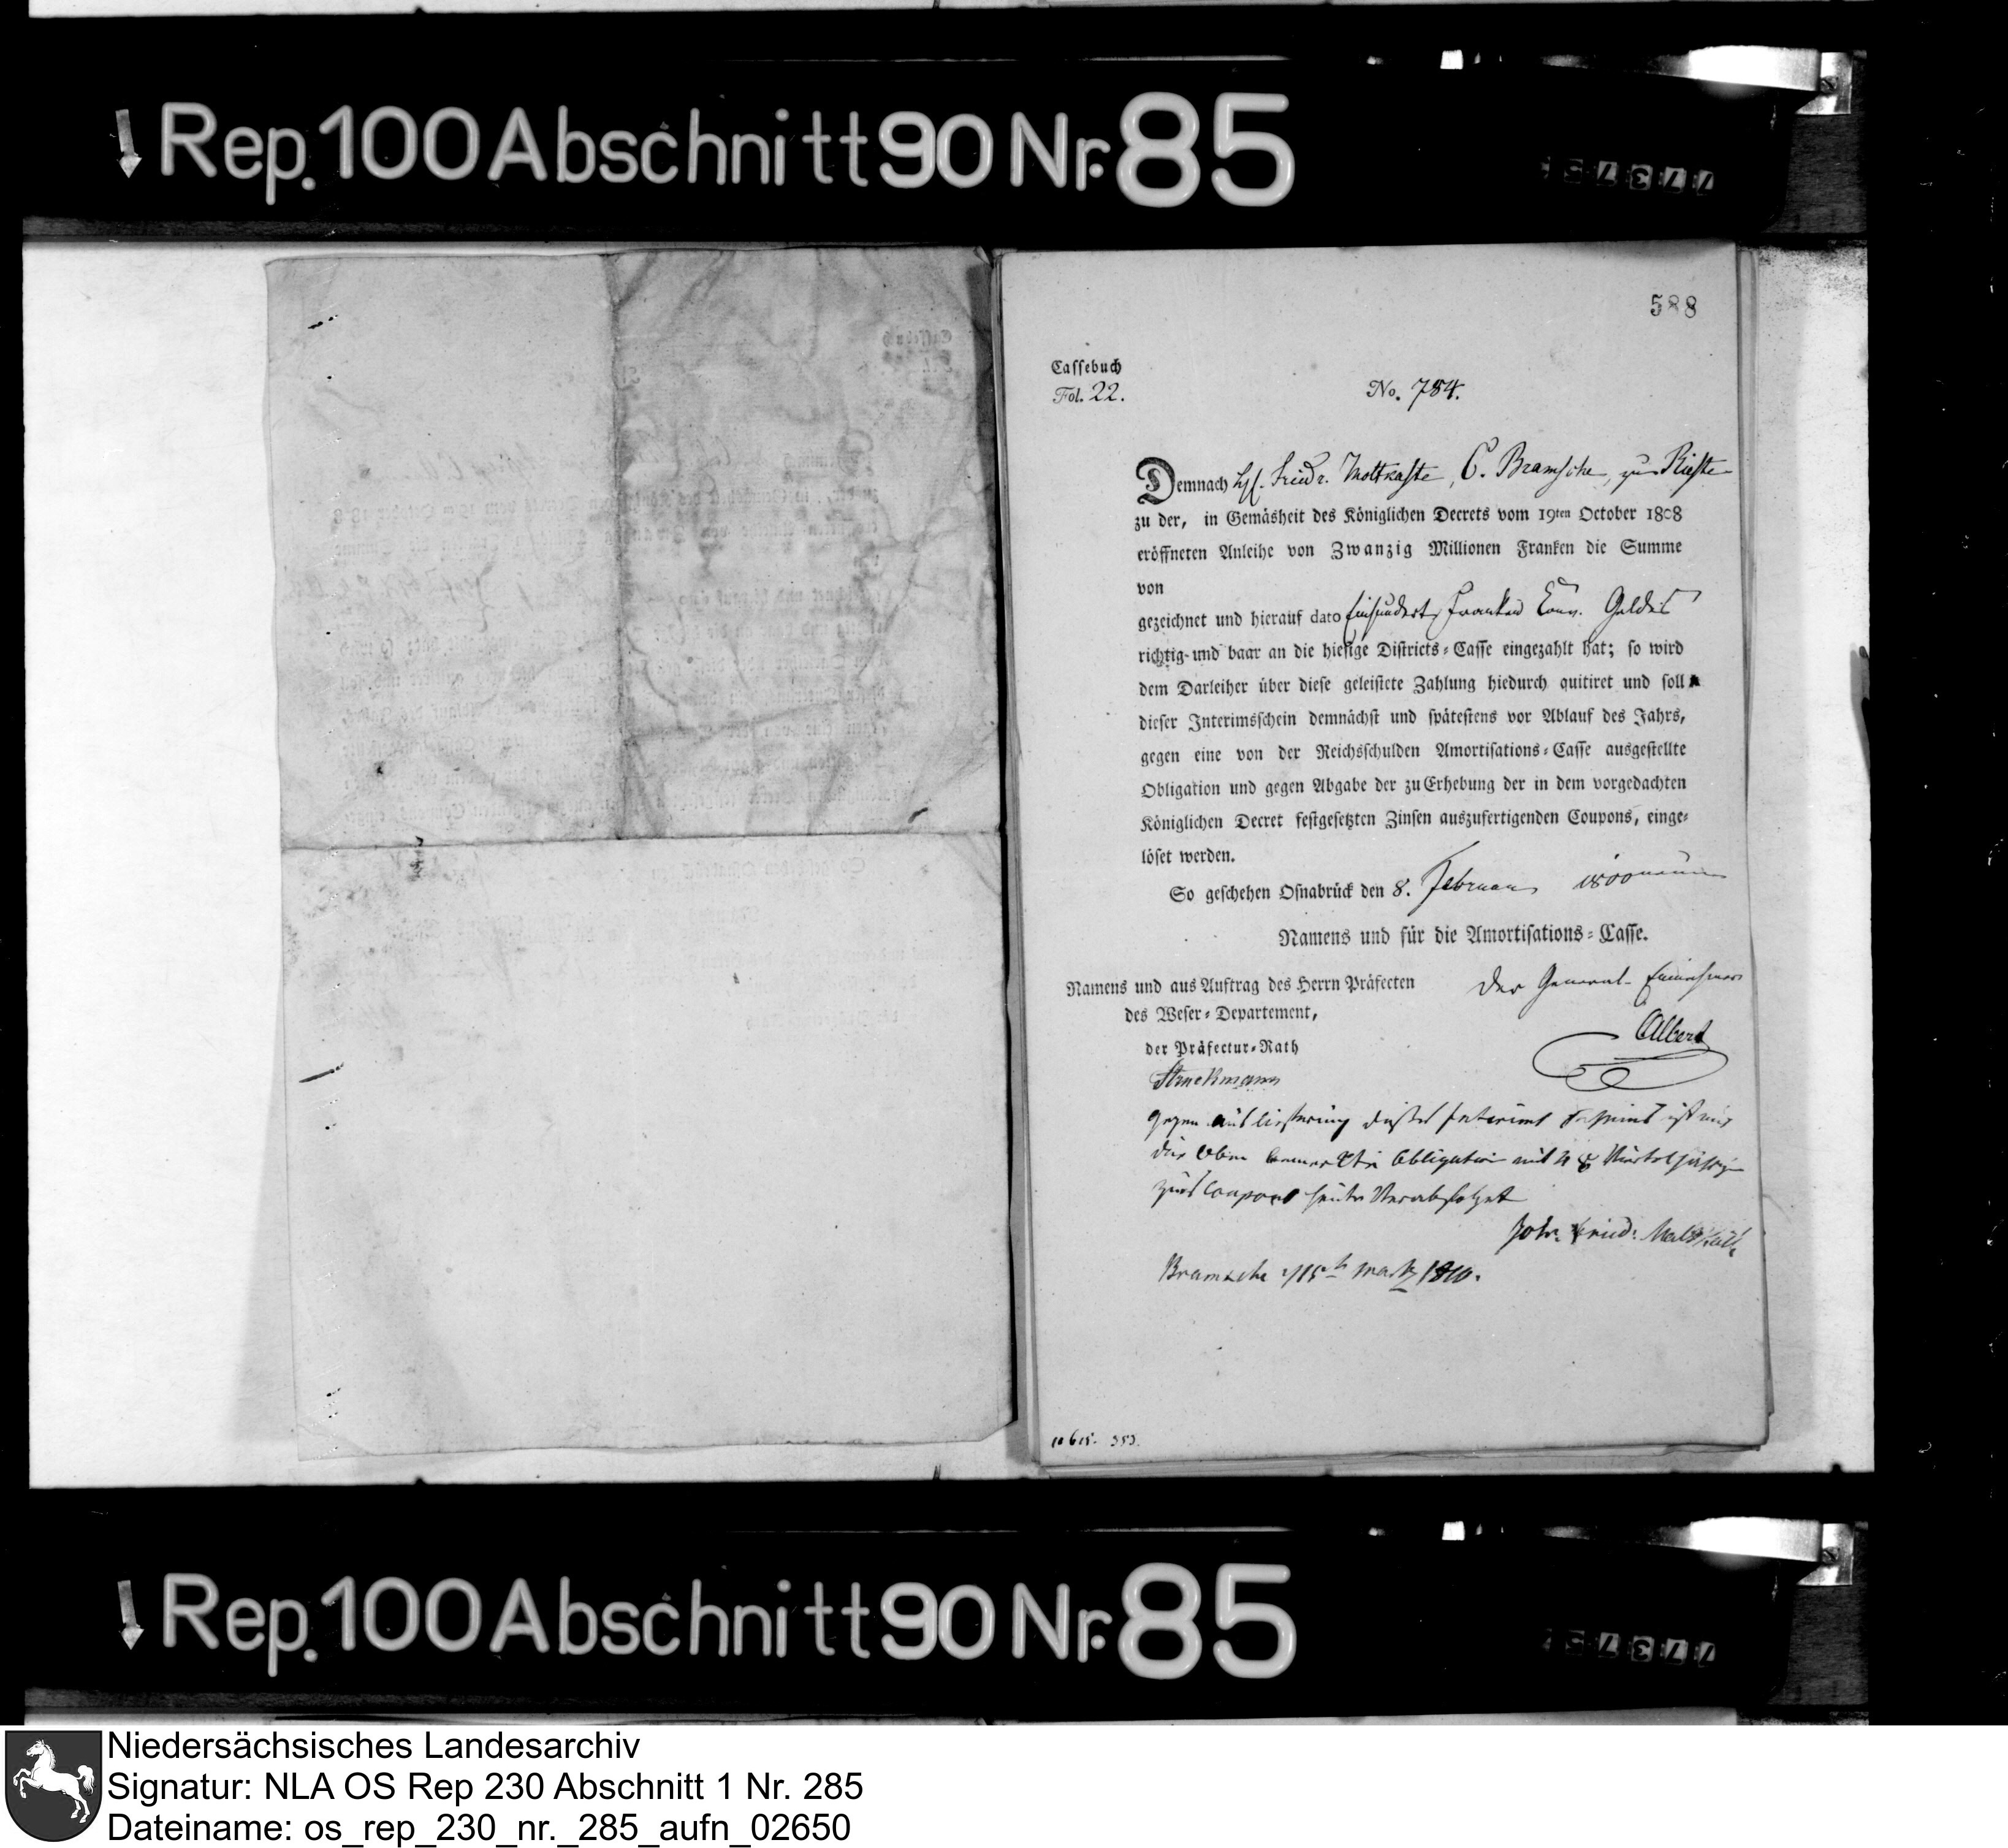 Rep. 100 Abschnitt 90 Nr. 85
588
Cassebuch
Fol. 22.
No. 784.
Demnach Joh. Friedr. C. Bramsche, zu Rieste
zu der, in Gemäsheit des Königlichen Decrets vom 19ten October 1808
eröffneten Anleihe von Zwanzig Millionen Franken die Summe
von
gezeichnet und hierauf dato Einhundert Franken Conv. Geldes
richtig und baar an die hiesige Districts-Casse eingezahlt hat; so wird
dem Darleiher über diese geleistete Zahlung hiedurch quitiret und soll
dieser Interimsschein demnächst und spätestens vor Ablauf des Jahrs,
gegen eine von der Reichsschulden Amortisations-Casse ausgestellte
Obligation und gegen Abgabe der zu Erhebung der in dem vorgedachten
Königlichen Decret festgesetzten Zinsen auszufertigenden Coupons, einge-
löset werden.
So geschehen Osnabrück den 8. Februar 1800neun
Namens und für die Amortisations-Casse.
Namens und aus Auftrag des Herrn Präfecten
des Weser-Departement,
der Präfectur-Rath
Struckmann
Der General-Einnehmer
Albert
gegen auslieferung dieses Interims Scheins ist mir
die oben bemerkte Obligation mit Vierteljährigen
Zins Coupons heute Verabfolget
Joh. Fried:
Bramsche 15 Martz 1810.
Rep. 100 Abschnitt 90 Nr. 85
Niedersächsisches Landesarchiv
Signatur: NLA OS Rep 230 Abschnitt 1 Nr. 285
Dateiname: os_rep_230_nr._285_aufn_02650